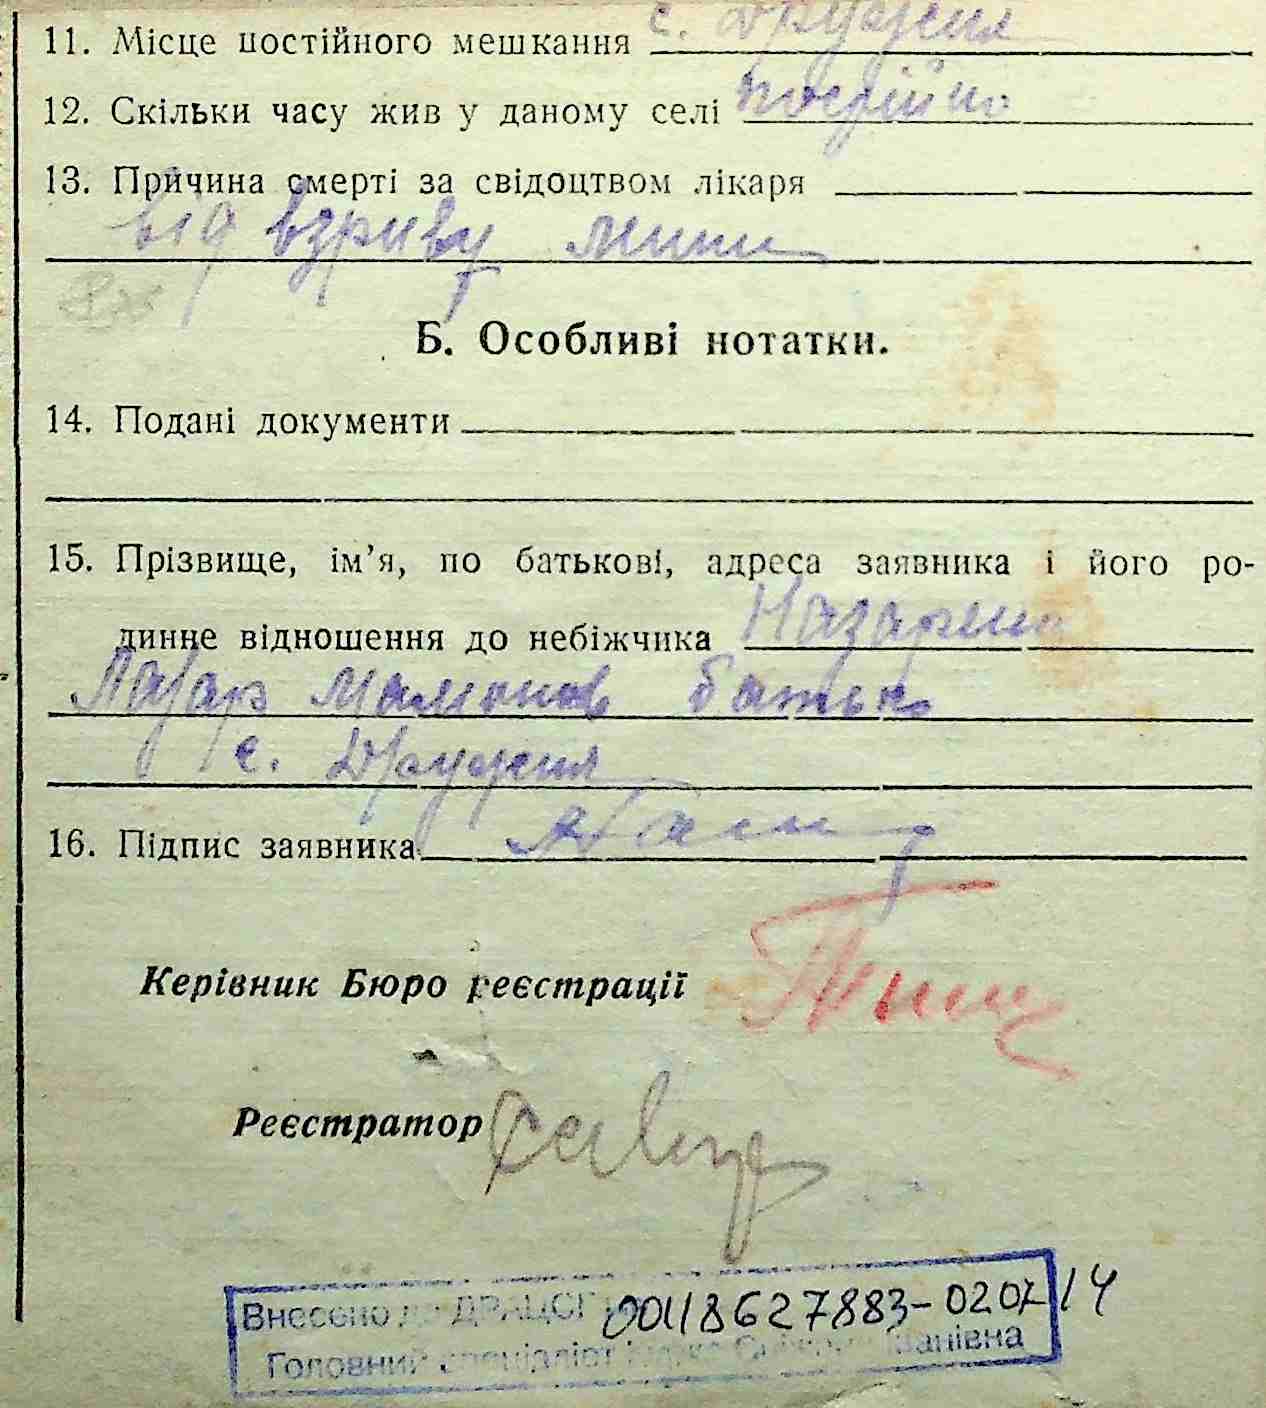 11. Місце постійного мешкання с. Дружня
12. Скільки часу жив у даному селі постійно
13. Причина смерті за свідоцтвом лікаря
від взриву мини
Б. Особливі нотатки.
14. Подані документи
15. Прізвище, ім’я, по батькові, адреса заявника і його ро-
динне відношення до небіжчика Назарено
Лазар Мамонов батько
с. Дружня
16. Підпис заявника
Керівник Бюро реєстрації
Реєстратор
Внесено до ДРАЦСГ 00118627883-0207/14
Головний спеціаліст Іванівна